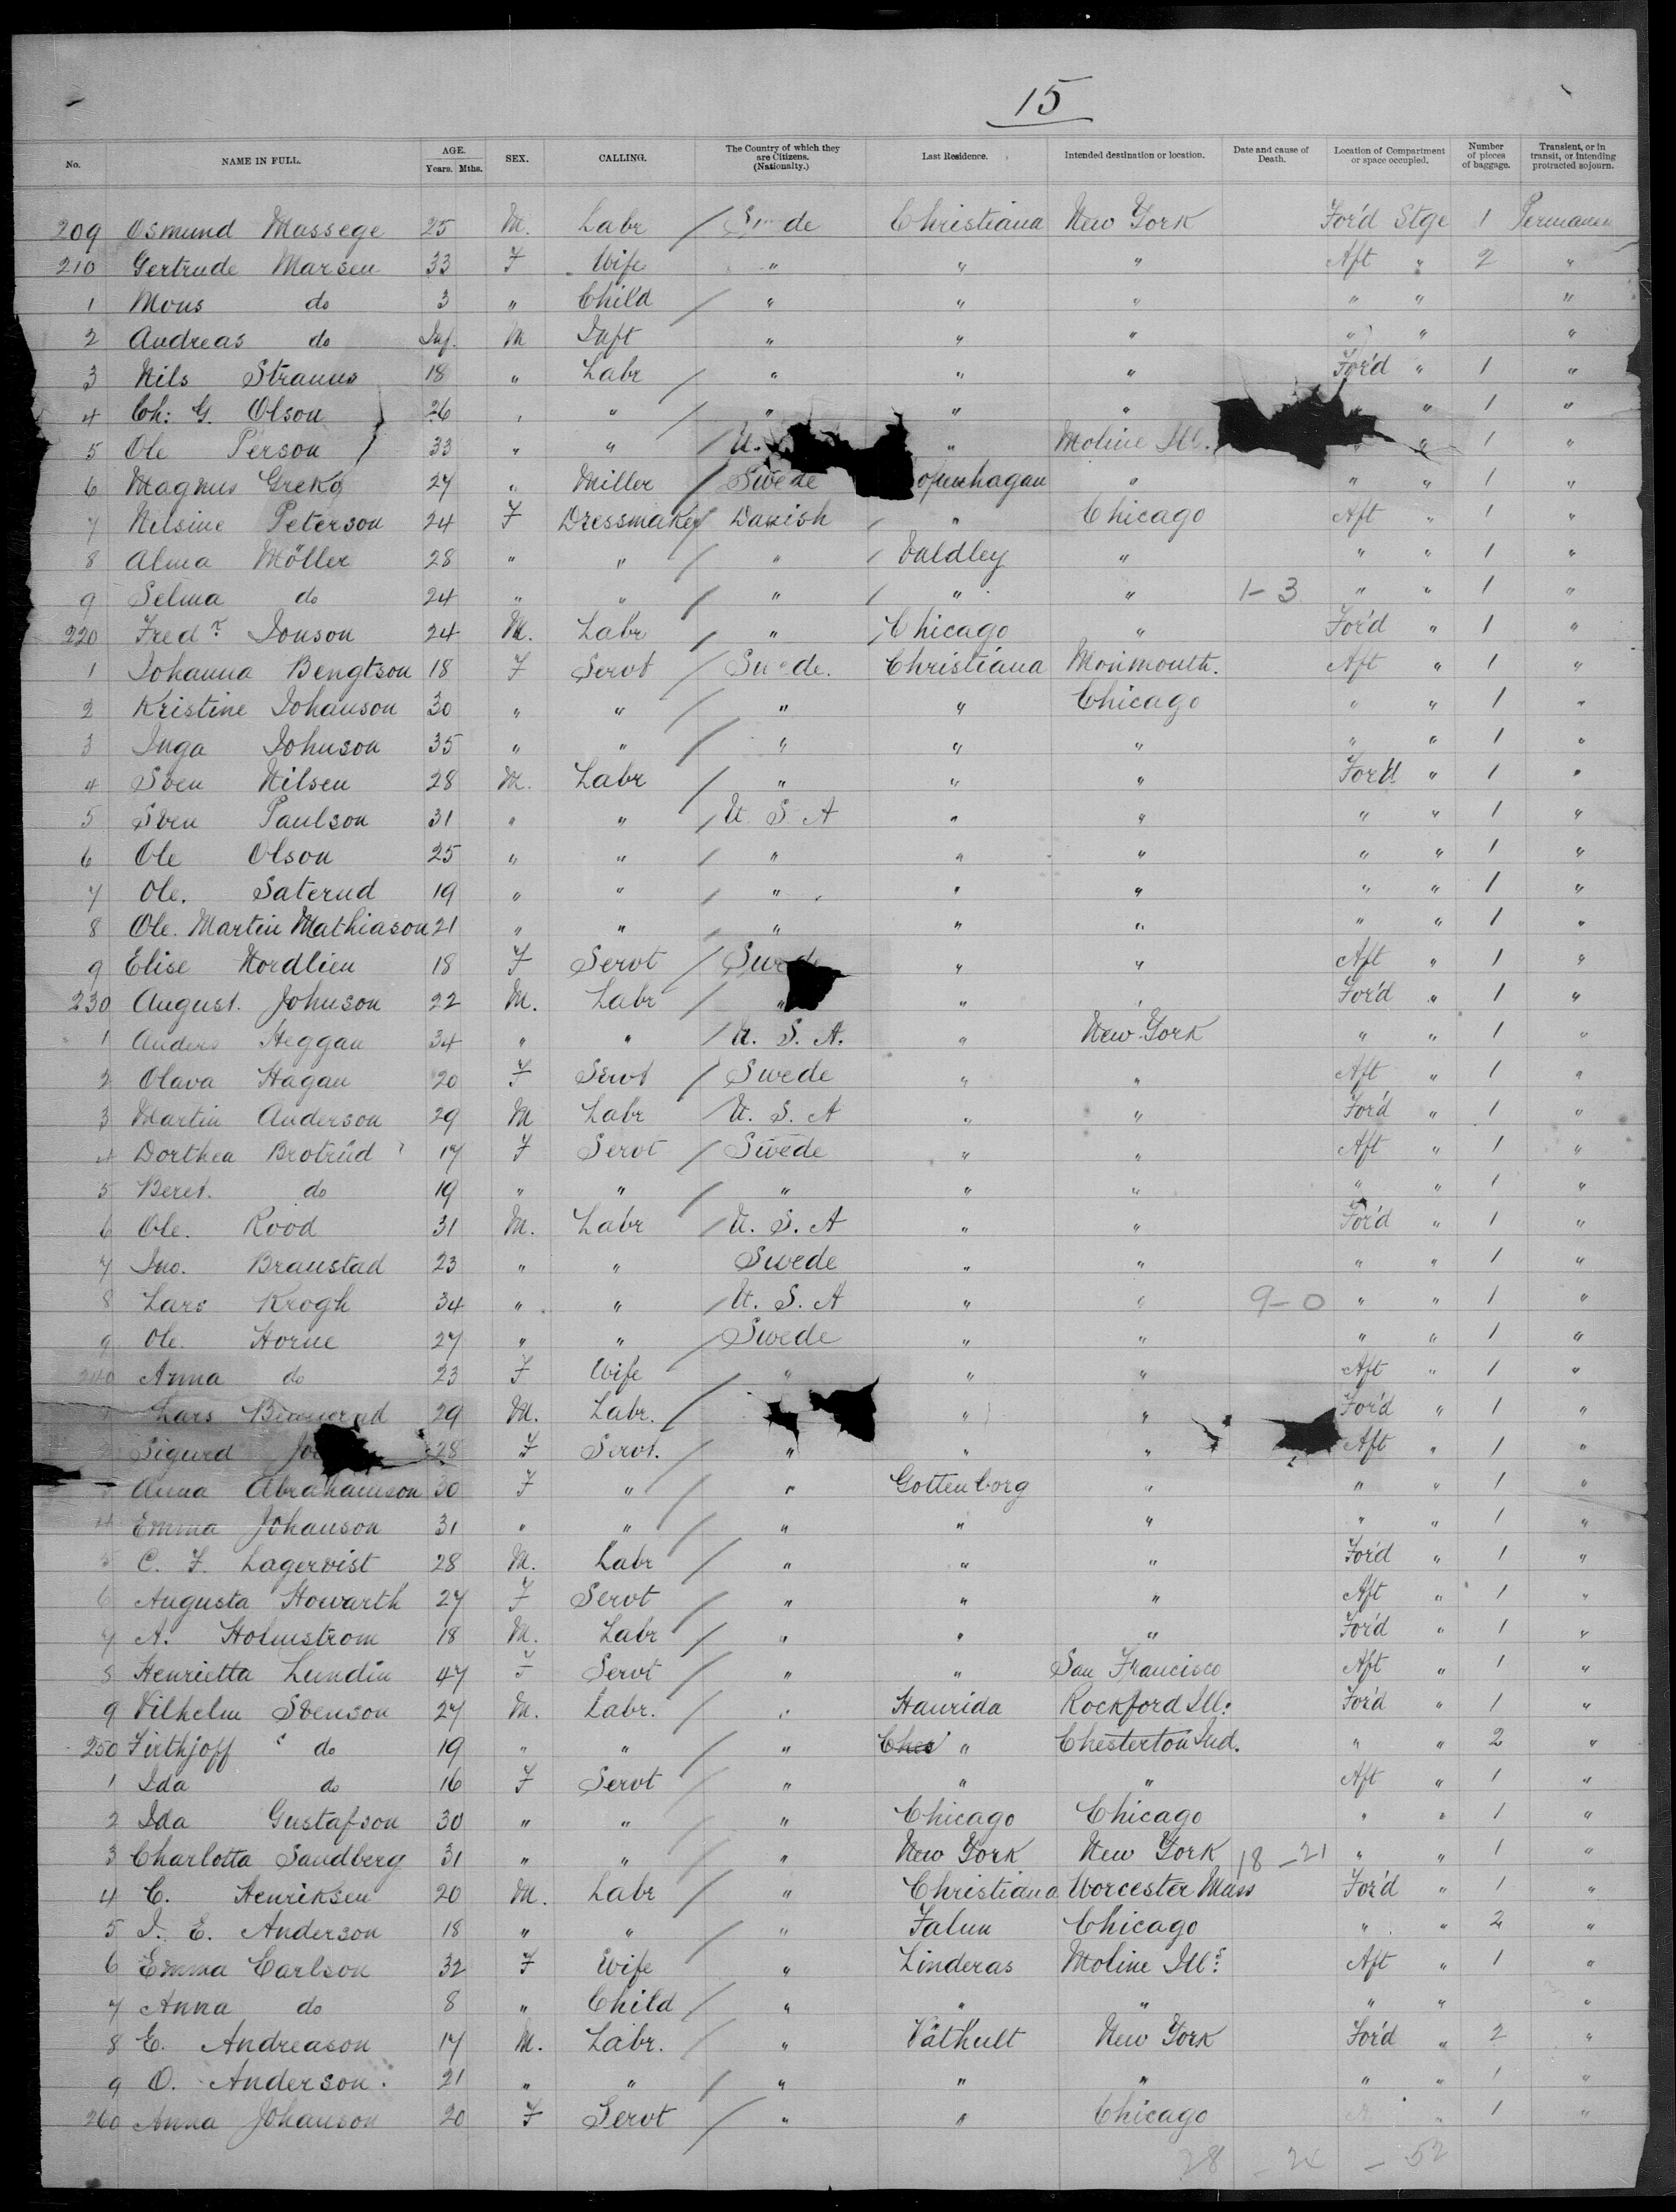 15
No. NAME IN FULL. AGE. Years. Mths. SEX. CALLING. The Country of which they are Citizens. (Nationalty.) Last Residence. Intended destination or location. Date and cause of Death. Location of Compartment or space occupied. Number of pieces of baggage. Transient, or in transit, or intending protracted sojourn.
209 Osmund Massege 25 M. Labr / Swede Christiana New York For'd Stge 1 Permanen
210 Gertrude Marsen 33 F Wife " " " Aft " 2 "
1 Mons do 3 " Child / " " " " " "
2 Andreas do Inf. M Inft " " " " " "
3 Nils Strauus 18 " Labr / " " " For'd " 1 "
4 Ch: G. Olson 26 " " / " " " " 1 "
5 Ole Person 33 " " / U. " Moline Ill. " 1 "
6 Magnus Grekq 27 " Miller / Swede openhagan " " " 1 "
7 Nilsine Peterson 24 F Dressmaker / Danish " Chicago Aft " 1 "
8 Alma Möller 28 " " / " / Valdley " " " 1 "
9 Selma do 24 " " / " / " " 1-3 " " 1 "
220 Fred r Jonson 24 M. Labr / " Chicago " For'd " 1 "
1 Johanna Bengtson 18 F Servt / Swede. Christiana Monmouth. Aft " 1 "
2 Kristine Johanson 30 " " / " " Chicago " " 1 "
3 Inga Johnson 35 " " / " " " " " 1 "
4 Sven Nilsen 28 M. Labr / " " " For'd " 1 "
5 Sven Paulson 31 " " / U. S. A " " " " 1 "
6 Ole Olson 25 " " / " " " " " 1 "
7 Ole. Saterud 19 " " / " " " " " 1 "
8 Ole. Martin Mathiason 21 " " / " " " " " 1 "
9 Elise Nordlien 18 F Servt / Swede " " Aft " 1 "
230 August. Johnson 22 M. Labr / " " " For'd " 1 "
1 Anders Heggan 34 " " / U. S. A. " New York " " 1 "
2 Olava Hagan 20 F Servt / Swede " " Aft " 1 "
3 Martin Anderson 29 M Labr / U. S. A " " For'd " 1 "
4 Dorthea Brotrud 17 F Servt / Swede " " Aft " 1 "
5 Beret. do 19 " " / " " " " " 1 "
6 Ole. Rood 31 M. Labr / U. S. A " " For'd " 1 "
7 Jno. Braustad 23 " " Swede " " " " 1 "
8 Lars Krogh 34 " " / U. S. A " " 9-0 " " 1 "
9 Ole. Horne 27 " " / Swede " " " " 1 "
240 Anna do 23 F Wife / " " " Aft " 1 "
Lars 29 M. Labr. / " " For'd " 1 "
Sigurd Jo 28 F Servt. / " " " Aft " 1 "
Anna Abrahamson 30 F " / " Gottenborg " " " 1 "
4 Emma Johanson 31 " " / " " " " " 1 "
5 C. F. Lagervist 28 M. Labr / " " " For'd " 1 "
6 Augusta Howarth 27 F Servt / " " " Aft " 1 "
7 A. Holmstrom 18 M. Labr / " " " For'd " 1 "
8 Henrietta Lundin 47 F Servt / " " San Francisco Aft " 1 "
9 Vilhelm Svenson 27 M. Labr. / " Haurida Rockford Ill: For'd " 1 "
250 Firthjoff do 19 " " / " Ches " Chesterton Ind. " " 2 "
1 Ida do 16 F Servt / " " " Aft " 1 "
2 Ida Gustafson 30 " " / " Chicago Chicago " " 1 "
3 Charlotta Sandberg 31 " " / " New York New York 18-21 " " 1 "
4 C. Henriksen 20 M. Labr / " Christiana Worcester Mass For'd " 1 "
5 J. E. Anderson 18 " " / " Falun Chicago " " 2 "
6 Emma Carlson 32 F Wife / " Linderas Moline Ills: Aft " 1 "
7 Anna do 8 " Child / " " " " " "
8 E. Andreason 17 M. Labr. / " Vathult New York For'd " 2 "
9 O. Anderson. 21 " " / " " " " " 1 "
260 Anna Johanson 20 F Servt / " " Chicago " 1 "
28 - 24 - 52